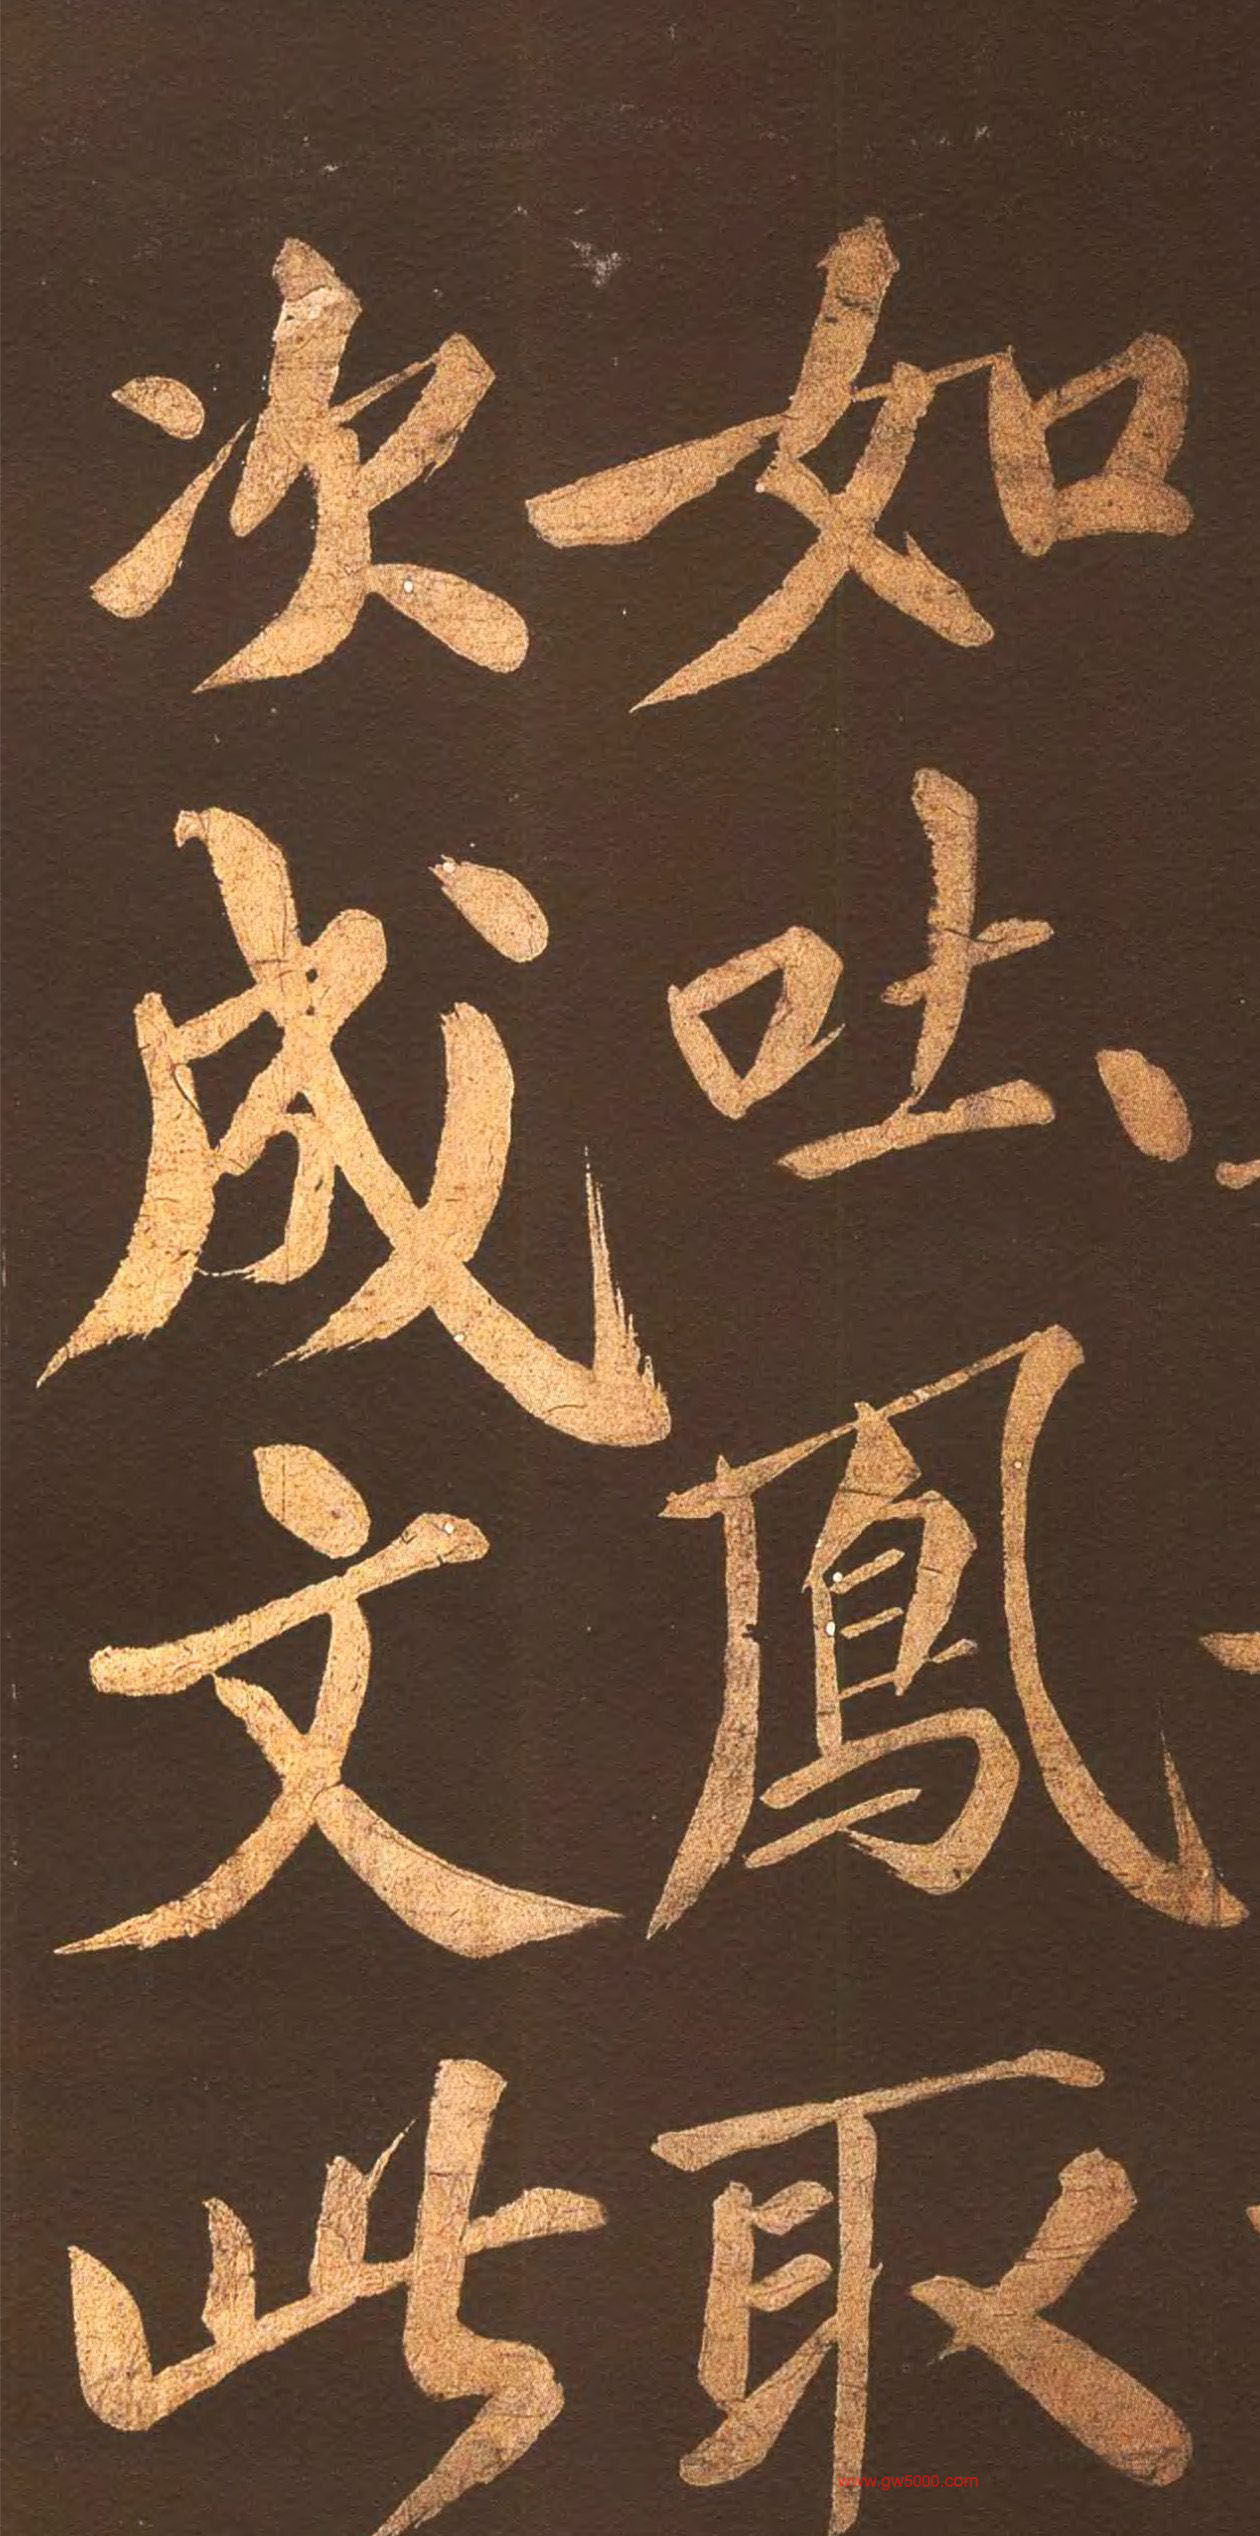 如吐鳳取
次成文此
www.gw5000.com